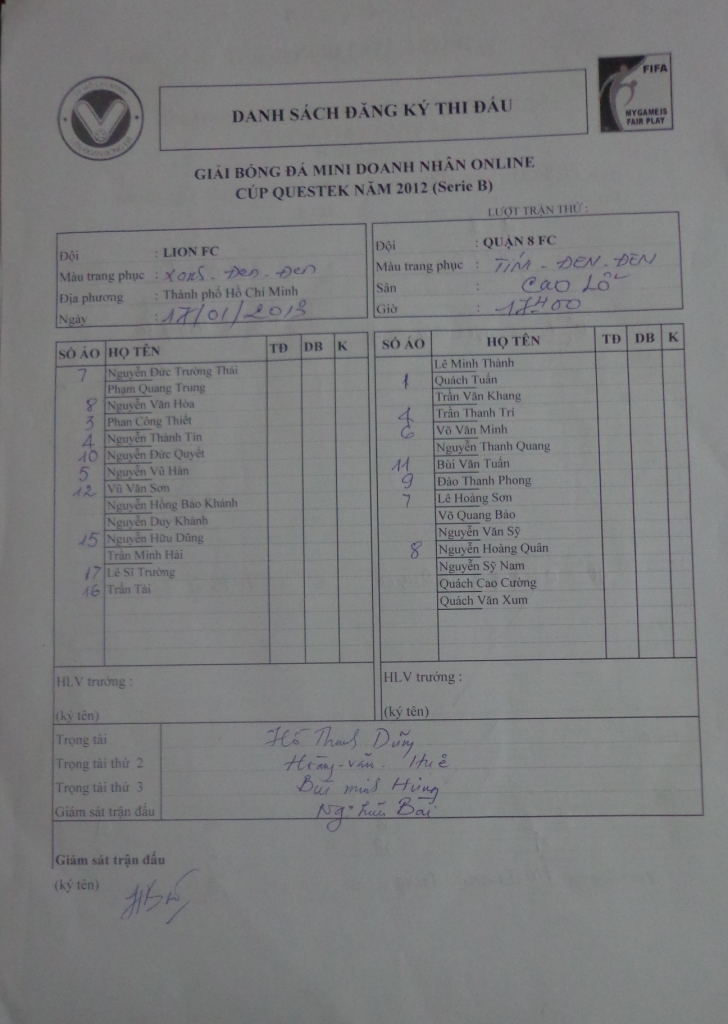 DANH SÁCH ĐĂNG KÝ THI ĐẤU
FIFA
MY GAME IS
FAIR PLAY
GIẢI BÓNG ĐÁ MINI DOANH NHÂN ONLINE
CÚP QUESTEK NĂM 2012 (Serie B)
LƯỢT TRẬN THỨ :
Đội : LION FC
Màu trang phục : xanh - Đen - Đen
Địa phương : Thành phố Hồ Chí Minh
Ngày : 17/01/2013
Đội : QUẬN 8 FC
Màu trang phục : TÍM - ĐEN - ĐEN
Sân : Cao Lỗ
Giờ : 17H00
SỐ ÁO HỌ TÊN TĐ DB K
7 Nguyễn Đức Trường Thái
Phạm Quang Trung
8 Nguyễn Văn Hòa
3 Phan Công Thiết
4 Nguyễn Thành Tín
10 Nguyễn Đức Quyết
5 Nguyễn Vũ Hân
12 Vũ Văn Sơn
Nguyễn Hồng Bảo Khánh
Nguyễn Duy Khánh
15 Nguyễn Hữu Dũng
Trần Minh Hải
17 Lê Sĩ Trường
16 Trần Tài
SỐ ÁO HỌ TÊN TĐ DB K
Lê Minh Thành
1 Quách Tuấn
Trần Văn Khang
4 Trần Thanh Trí
6 Võ Văn Minh
Nguyễn Thanh Quang
11 Bùi Văn Tuấn
9 Đào Thanh Phong
7 Lê Hoàng Sơn
Võ Quang Bảo
Nguyễn Văn Sỹ
8 Nguyễn Hoàng Quân
Nguyễn Sỹ Nam
Quách Cao Cường
Quách Văn Xum
HLV trưởng :
(ký tên)
HLV trưởng :
(ký tên)
Trọng tài Hồ Thanh Dũng
Trọng tài thứ 2 Hoàng - văn - Huê
Trọng tài thứ 3 Bùi minh Hùng
Giám sát trận đấu Ng. Bài
Giám sát trận đấu
(ký tên)